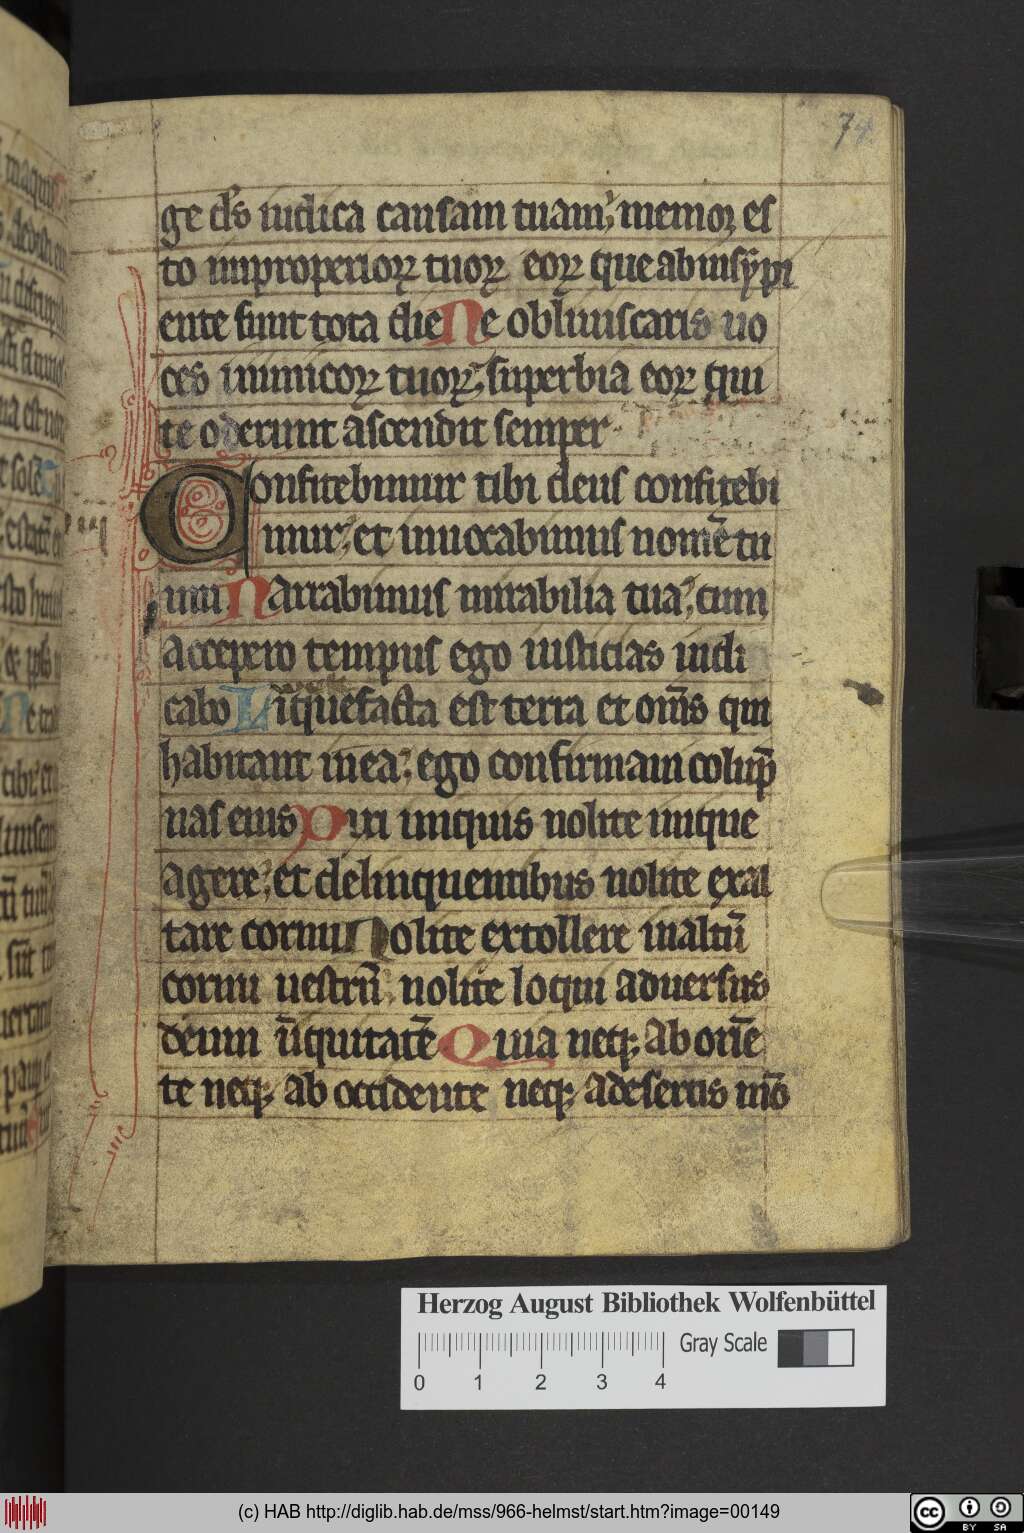 74
ge ds iudica causam tuam; memor es
to improperiorꝝ tuoꝝ eoꝝ que ab insypi
ente sunt tota die Ne obliuiscaris uo
ces inimicoꝝ tuoꝝ; superbia eoꝝ qui
te oderunt ascendit semper
Confitebimur tibi deus confitebi
mur; et inuocabimus nomē tu
um Narrabimus mirabilia tua; cum
accepero tempus ego iusticias iudi
cabo Liq̄uefacta est terra et om̄s qui
habitant in ea; ego confirmaui colup̄
nas eius Dixi iniquis nolite inique
agere; et delinquentibus nolite exal
tare cornu Nolite extollere in altū
cornu uestrū nolite loqui aduersus
deum iniquitatē Quia neq; ab orīe
te neq; ab occidente neq; a desertis mō
Herzog August Bibliothek Wolfenbüttel
Gray Scale
0 1 2 3 4
(c) HAB http://diglib.hab.de/mss/966-helmst/start.htm?image=00149
cc BY SA